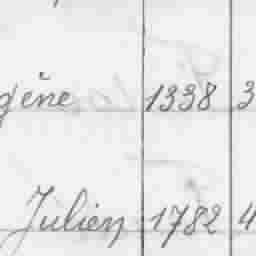 gène 1338 3
Julien 1782 4